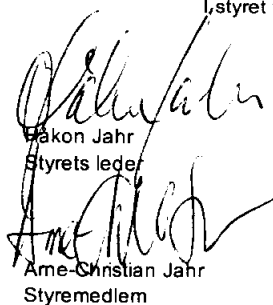 I styret
Håkon Jahr
Styrets leder
Arne-Christian Jahr
Styremedlem